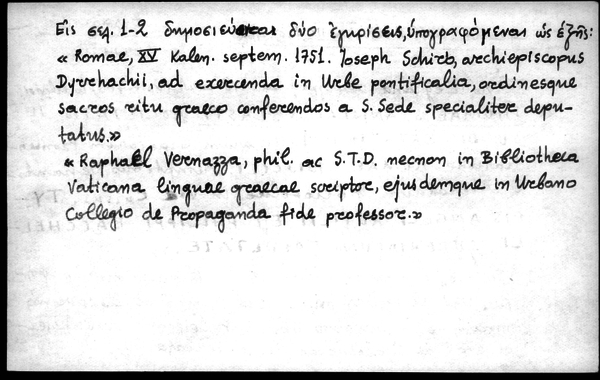 Εἰς σελ. 1-2 δημοσιεύονται δύο ἐγκρίσεις, ὑπογραφόμεναι ὡς ἑξῆς:
« Romae, XV Kalen. septem. 1751. Joseph Schirò, archiepiscopus
Dyrrhachii, ad exercenda in Urbe pontificalia, ordinesque
sacros ritu graeco conferendos a S. Sede specialiter depu-
tatus.»
« Raphaël Vernazza, phil. ac S.T.D. necnon in Bibliotheca
Vaticana linguae graecae scriptor, ejusdemque in Urbano
Collegio de Propaganda fide professor.»